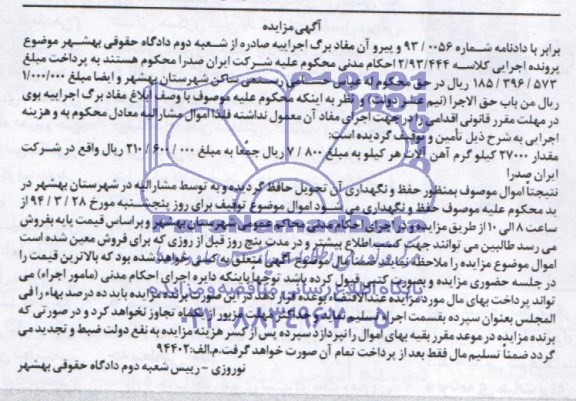 آگهی مزایده
برابر با دادنامه شماره 0056 / 93 و پیرو آن مفاد برگ اجراییه صادره از شعبه دوم دادگاه حقوقی بهشهر موضوع
پرونده اجرایی کلاسه 2/93/444 احکام مدنی محکوم علیه شرکت ایران صدرا محکوم هستند به پرداخت مبلغ
185/396/573 ریال در حق محکوم له رستمی ساکن شهرستان بهشهر و ایضا مبلغ 1/000/000
ریال من باب حق الاجرا (نیم عشر دولت) و نظر به اینکه محکوم علیه موصوف با وصف ابلاغ مفاد برگ اجراییه بوی
در مهلت مقرر قانونی اقدامی را در جهت اجرای مفاد آن معمول نداشته فلذا اموال مشارالیه معادل محکوم به و هزینه
اجرایی به شرح ذیل تأمین و توقیف گردیده است:
مقدار 27000 کیلو گرم آهن آلات هر کیلو به مبلغ 7/800 ریال جمعا به مبلغ 210/600/000 ریال واقع در شرکت
ایران صدرا
نتیجتاً اموال موصوف بمنظور حفظ و نگهداری آن تحویل حافظ گردیده و به توسط مشارالیه در شهرستان بهشهر در
ید محکوم علیه موصوف حفظ و نگهداری می شود اموال موضوع توقیف برای روز پنجشنبه مورخ 94/3/28 از
ساعت 8 الی 10 از طریق مزایده و در اجرای احکام مدنی محاکم عمومی شهرستان بهشهر و براساس قیمت پایه بفروش
می رسد طالبین می توانند جهت کسب اطلاع بیشتر و در مدت پنج روز قبل از روزی که برای فروش معین شده است
اموال موضوع مزایده را ملاحظه نمایند ضمناً مال موضوع آگهی متعلق به کسی خواهد شده بود که بالاترین قیمت را
در جلسه حضوری مزایده و بصورت کتبی قبول کرده باشد توجهاً باینکه دایره اجرای احکام مدنی (مامور اجراء) می
تواند پرداخت بهای مال مورد مزایده عندالاقتضاء بوعده قرار دهد در این صورت برنده مزایده باید ده درصد بهاء را فی
المجلس بعنوان سپرده بقسمت اجرا تسلیم نماید حداکثر مهلت مزبور از یکماه تجاوز نخواهد کرد و در صورتی که
برنده مزایده در موعد مقرر بقیه بهای اموال را نپردازد سپرده پس از کسر هزینه مزایده به نفع دولت ضبط و تجدید می
گردد ضمناً تسلیم مال فقط بعد از پرداخت تمام آن صورت خواهد گرفت.م.الف:94402
نوروزی - رییس شعبه دوم دادگاه حقوقی بهشهر
ParsNamadData
پایگاه اطلاع رسانی مناقصه و مزایده
021-88349670-5